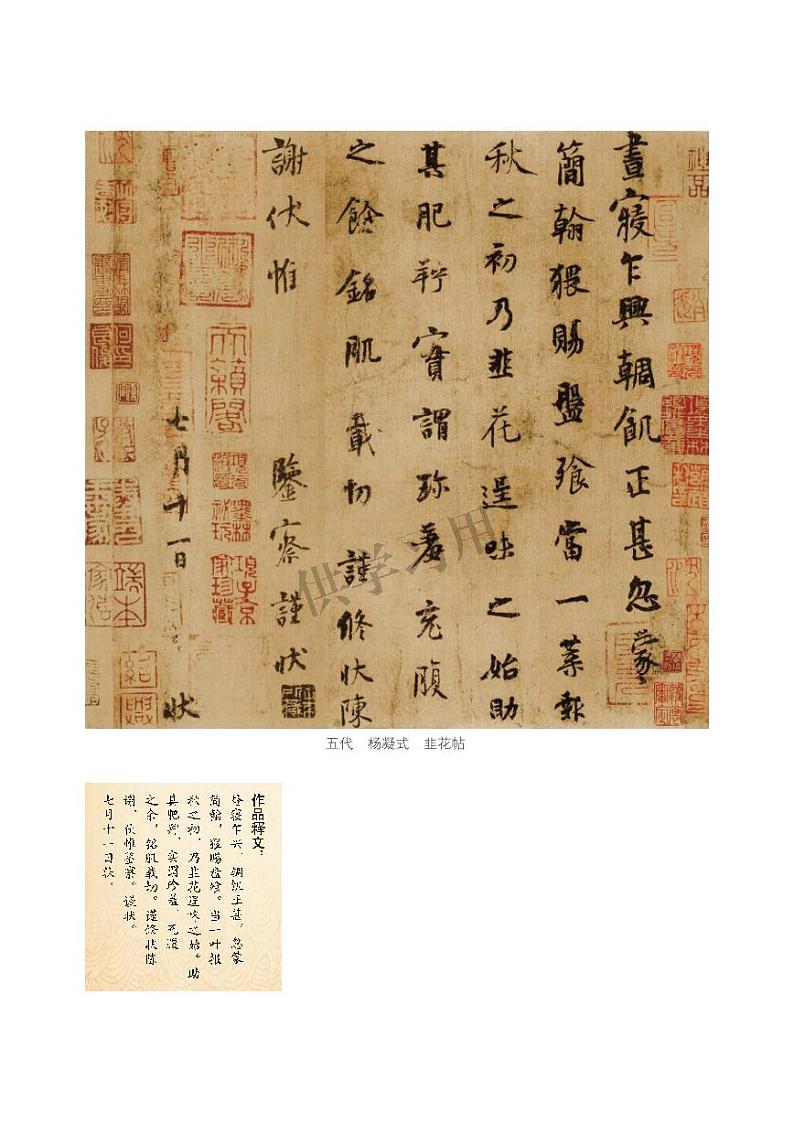 晝寢乍興輖飢正甚忽蒙
簡翰猥賜盤飧當一葉報
秋之初乃韭花逞味之始助
其肥羜實謂珍羞充腹
之餘銘肌載切謹修狀陳
謝伏惟 鑒察謹狀
七月十一日 狀
天籟閣
項子京家珍藏
紹興
供学习用
五代 杨凝式 韭花帖
作品释文：
昼寝乍兴，輖饥正甚，忽蒙
简翰，猥赐盘飧。当一叶报
秋之初，乃韭花逞味之始。助
其肥羜，实谓珍羞，充腹
之余，铭肌载切。谨修状陈
谢，伏惟鉴察。谨状。
七月十一日状。